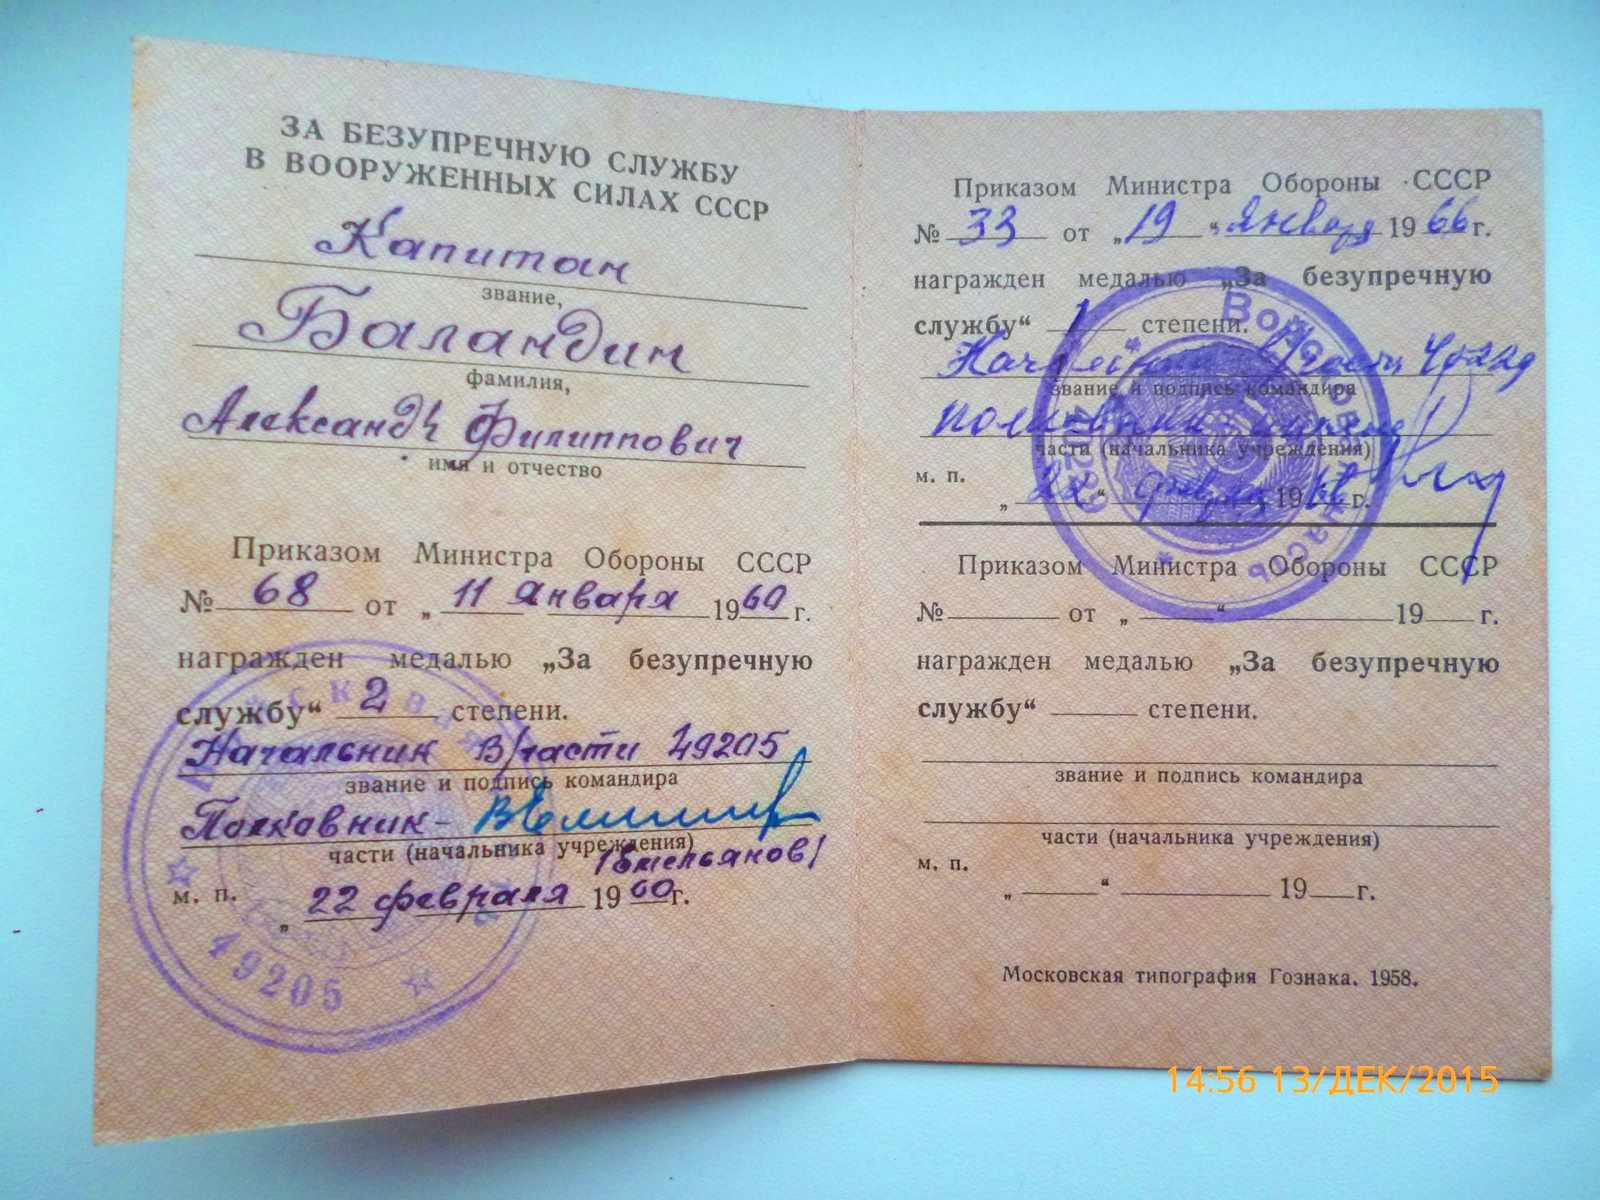 ЗА БЕЗУПРЕЧНУЮ СЛУЖБУ
В ВООРУЖЕННЫХ СИЛАХ СССР
Капитан
звание,
Баландин
фамилия,
Александр Филиппович
имя и отчество
Приказом Министра Обороны СССР
№ 68 от „ 11 января 1960 г.
награжден медалью „За безупречную
службу“ 2 степени.
Начальник В/части 49205
звание и подпись командира
Полковник-
части (начальника учреждения)
/Емельянов/
м. п.
„ 22 февраля 1960 г.
49205
Приказом Министра Обороны СССР
№ 33 от „19“ января 1966 г.
награжден медалью „За безупречную
службу“ 1 степени.
Войсковая часть
звание и подпись командира
части (начальника учреждения)
м. п.
„ 22 “ 19 г.
Приказом Министра Обороны СССР
№ от „ “ 19 г.
награжден медалью „За безупречную
службу“ степени.
звание и подпись командира
части (начальника учреждения)
м. п.
„ “ 19 г.
Московская типография Гознака. 1958.
14:56 13/ДЕК/2015